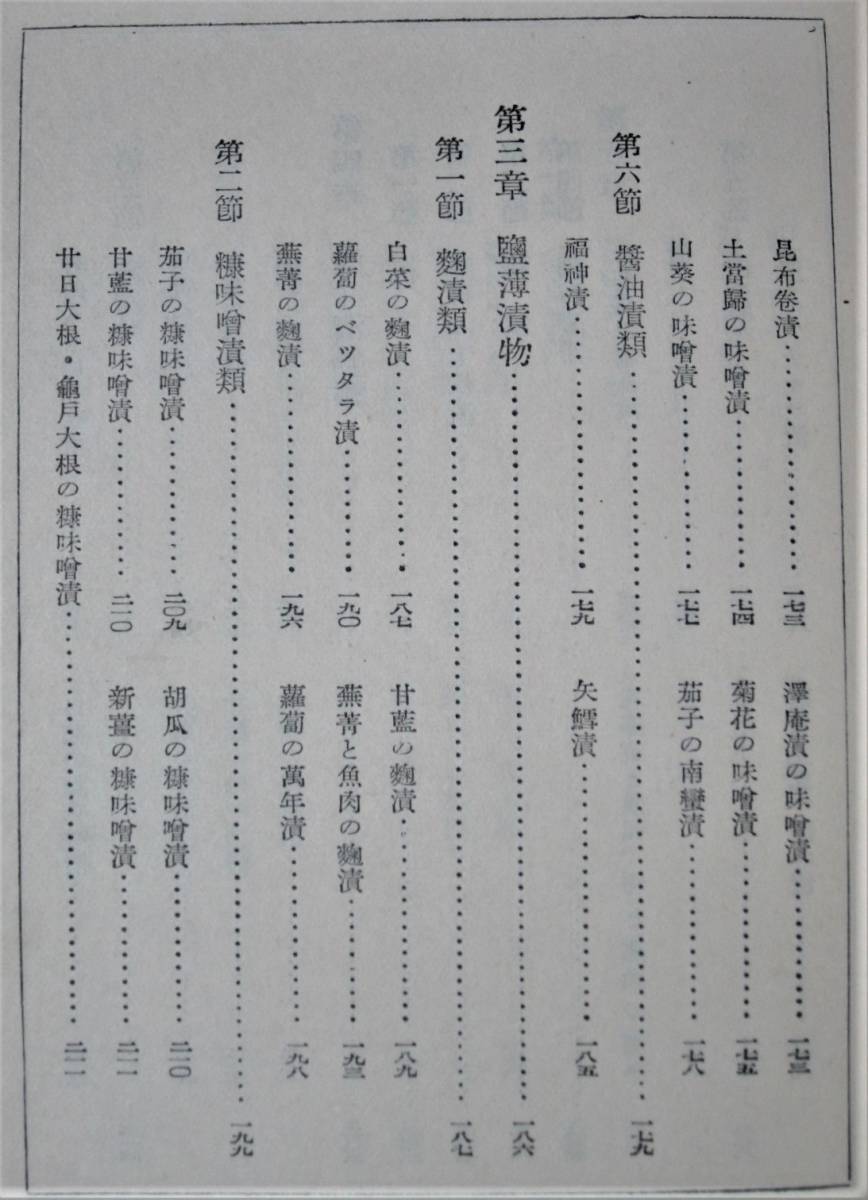 昆布卷漬……一七三　澤庵漬の味噌漬……一七三
土當歸の味噌漬……一七四　菊花の味噌漬……一七五
山葵の味噌漬……一七七　茄子の南蠻漬……一七八
第六節　醬油漬類……一七九
福神漬……一七九　矢鱈漬……一八五
第三章　鹽薄漬物……一八六
第一節　麴漬類……一八七
白菜の麴漬……一八七　甘藍の麴漬……一八九
蘿蔔のベツタラ漬……一九〇　蕪菁と魚肉の麴漬……一九三
蕪菁の麴漬……一九六　蘿蔔の萬年漬……一九八
第二節　糠味噌漬類……一九九
茄子の糠味噌漬……二〇九　胡瓜の糠味噌漬……二一〇
甘藍の糠味噌漬……二一〇　新薑の糠味噌漬……二一一
廿日大根・龜戸大根の糠味噌漬……二一一